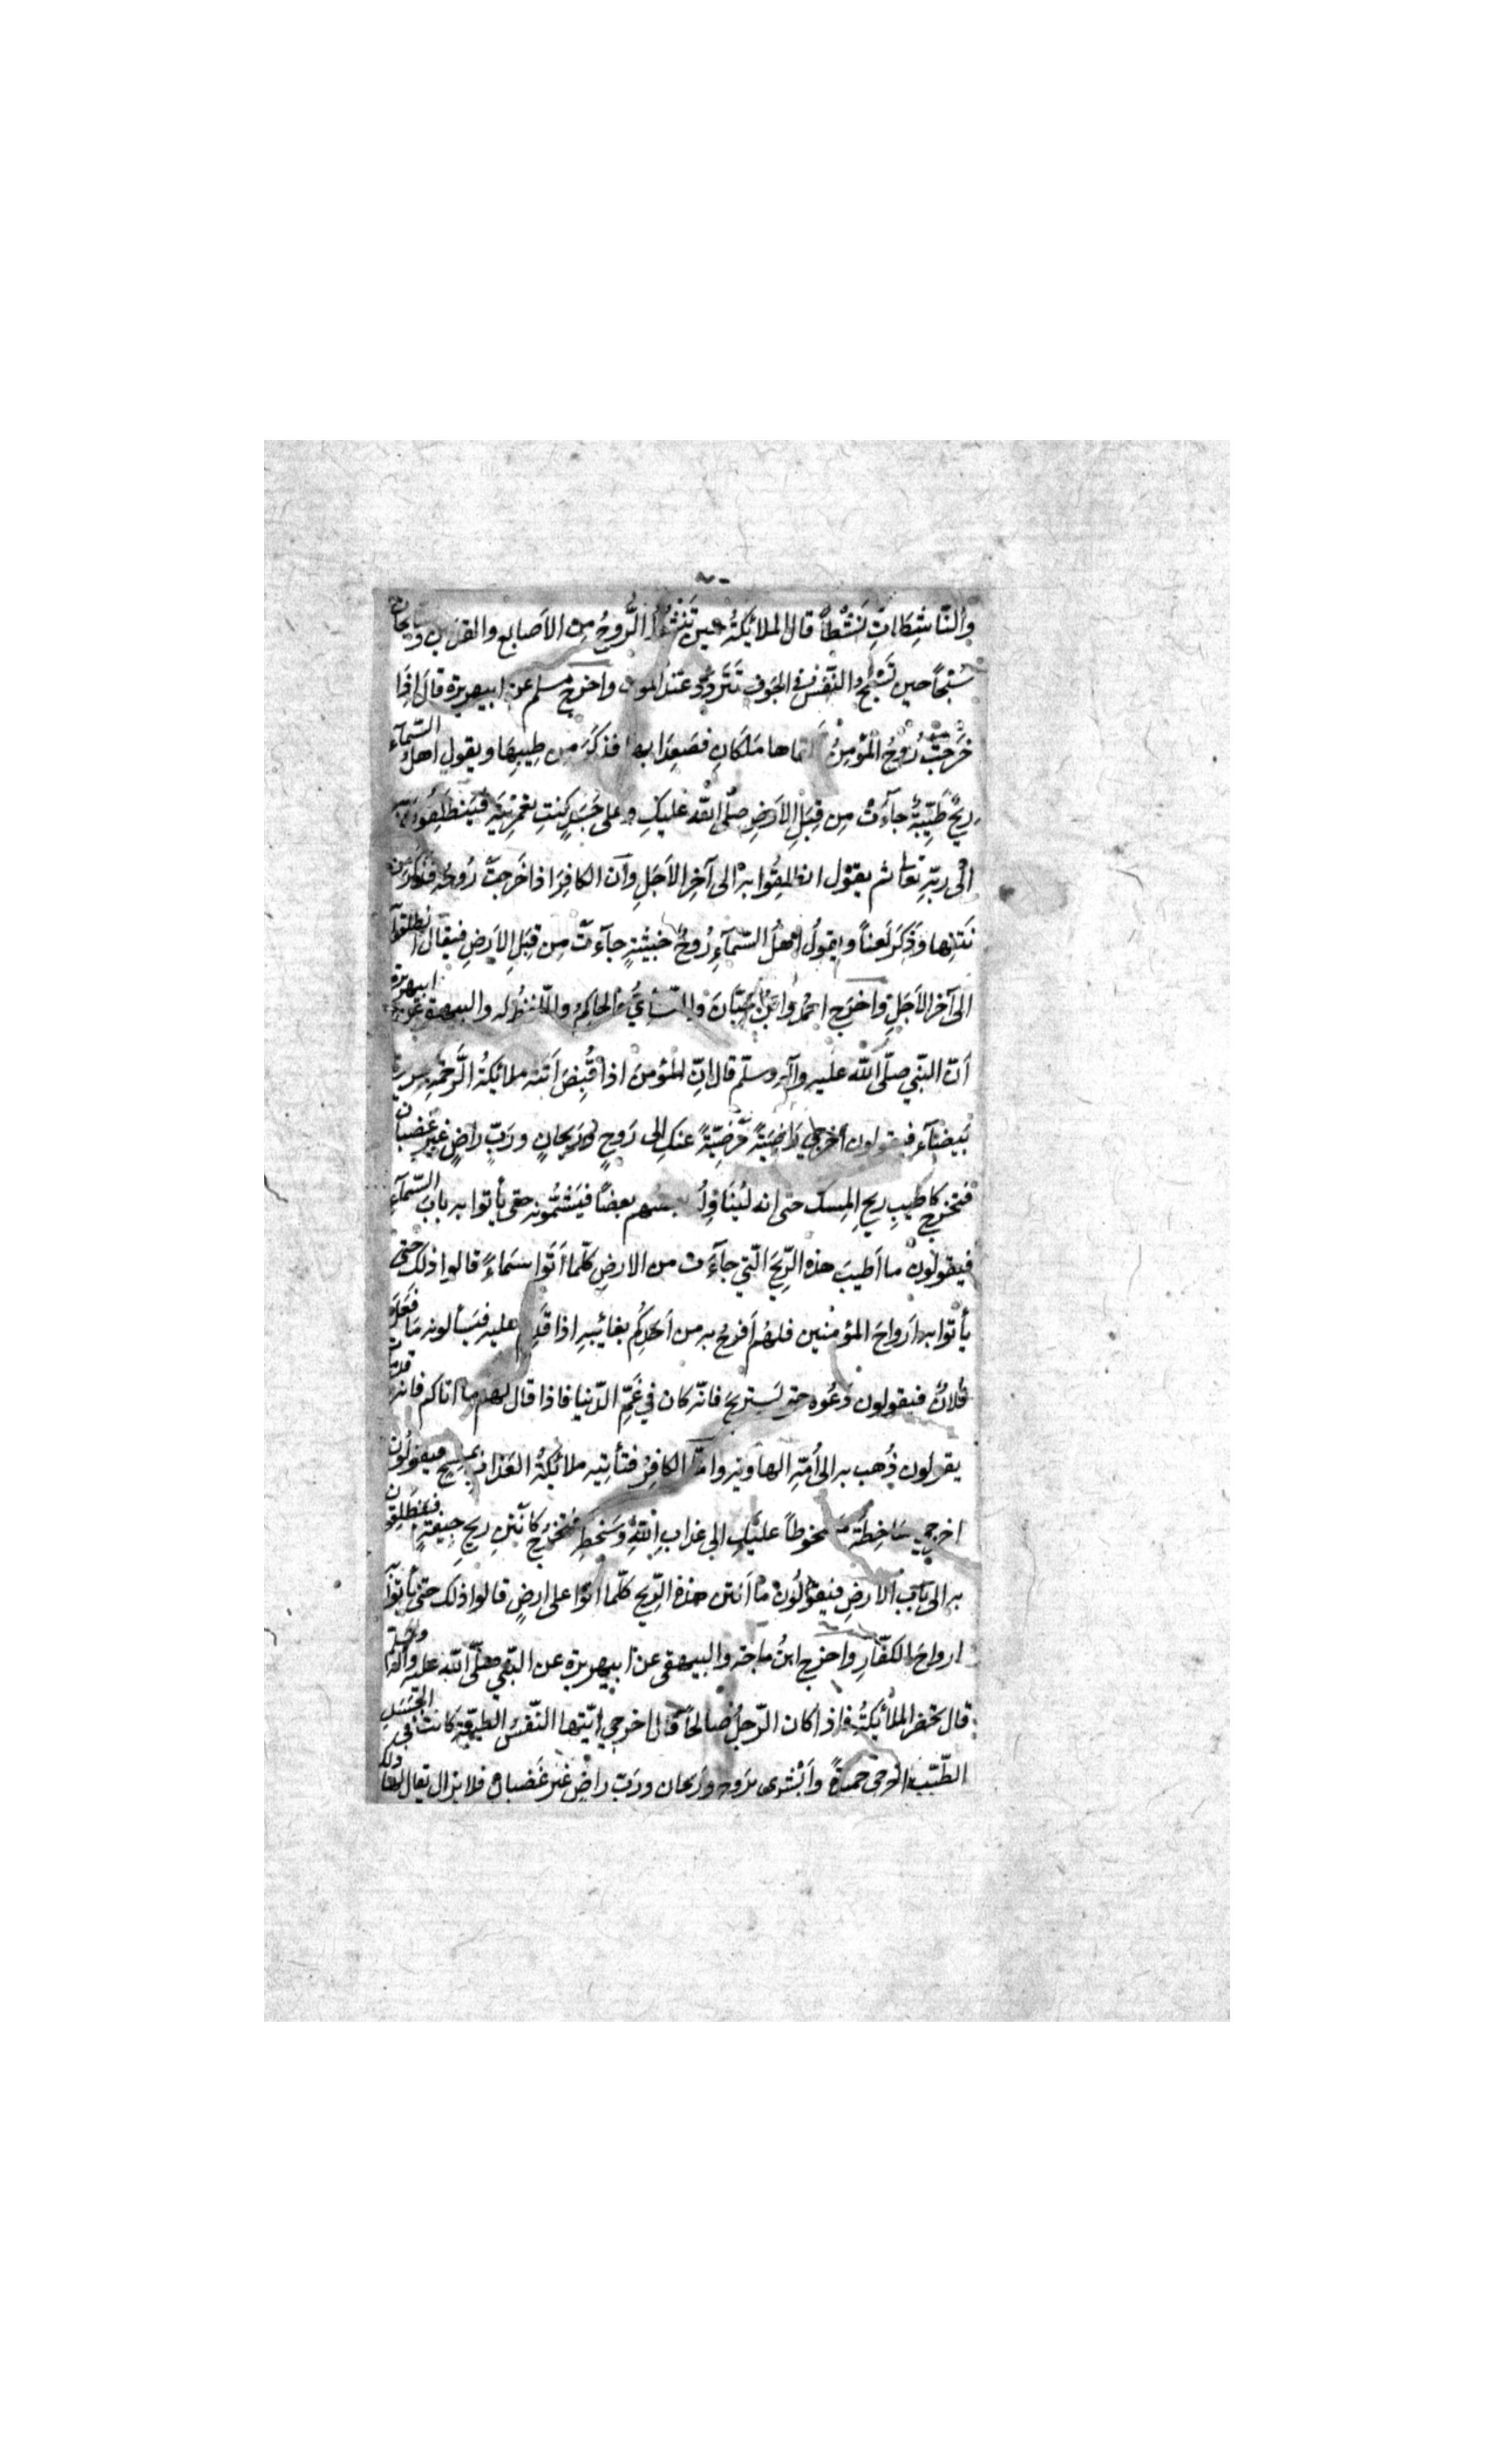 والنّاشِطَاتِ نَشْطاً قال الملائكةُ حين تَنْشُطُ الرُّوحُ من الأصابع والقدمين والسابحات
سَبْحاً حين تَسْبَحُ النّفسُ في الجَوفِ تَتَردَّدُ عند الموت واخرج مسلم عن ابيهريرة قال اذا
خَرَجَتْ رُوحُ المؤمِنُ تلقاها مَلَكانِ فصَعِدَا بها فذكَرَ من طِيبِها ويقول اهلُ السّمآءِ
ريحٌ طَيِّبَةٌ جآءَتْ مِن قِبَلِ الارضِ صلّى الله عليكِ وعلى جَسَدٍ كنتِ تعمرينَه فيَنطَلِقُونَ به
الى ربّه تعالى ثم يقول انطلِقُوا به الى آخِرِ الاَجَلِ وان الكافِرَ اذا خَرَجَتْ رُوحُه فذكَرَ من
نَتَنِها وذَكَرَ لَعناً ويقولُ اهلُ السّمآءِ رُوحٌ خبيثةٍ جآءَتْ من قِبَلِ الارضِ فيقال انطلقوا
الى آخر الاَجَلِ واخرج احمدُ وابنُ حِبّانَ والنّسائيُّ والحاكِمُ واللّفظُ له والبيهقي عن ابيهريرة
اَنّ النبّي صلّى الله عليه وآله وسلّم قال اِنّ المؤمنَ اذا قُبِضَ اَتَتْه ملائكةُ الرَّحمَةِ بحريرة
بَيضَآءَ فيقولون اُخرجي رَاضِيَةً مَرضِيّةً عنكِ الى رَوحٍ ورَيحانٍ وربٍّ راضٍ غيرِ غَضبان
فتَخرج كاَطيبِ ريحِ المِسك حتى انه ليُنَاوِلُه بعضهم بعضاً فيَشمُّونه حتى يأتوا به بابَ السّمآءِ
فيقولون ما اَطيبَ هذه الرّيحَ الّتي جآءَت من الارضِ كلّما اَتَوا سَماءً قالوا ذلك حتى
يأتوا به اَرواحَ المؤمنين فلهُم اَفرحُ به من اَحدِكُم بغائبِه اذا قَدِمَ عليه فيَسألونه مَا فَعَلَ
فُلانٌ فيقولون دَعُوه حتى يَستريحَ فانّه كان في غَمِّ الدّنيا فاذا قال لهم ما اتاكم فانه قد مات
يقولون ذُهِب به الى اُمّهِ الهاوية واما الكافِرُ فتأتيه ملائكةُ العذاب بمِسحٍ فيقولُون
اخرجي سَاخِطَةً مسخوطاً عليكِ الى عذابِ اللهِ وسَخَطِه فتخرُجُ كاَنتَنِ ريحِ جِيفةٍ فينطلِقون
به الى باب الارضِ فيقولُون ما اَنتن هذه الرّيح كلّما اتوا على ارضٍ قالوا ذلك حتى يأتوا به
ارواحَ الكفّارِ واخرج ابنُ ماجة والبيهقي عن ابيهريرة عن النبّي صلّى الله عليه وآله وسلّم
قال تحضر الملائكةُ فاذا كان الرّجلُ صالحاً قال اخرجي ايّتها النّفسُ الطيبة كانت في الجَسَدِ
الطّيّب اخرجي حميدةً واَبشري برَوحٍ ورَيحان وربّ راضٍ غيرِ غَضبان فلا يزال يقال لها ذلك